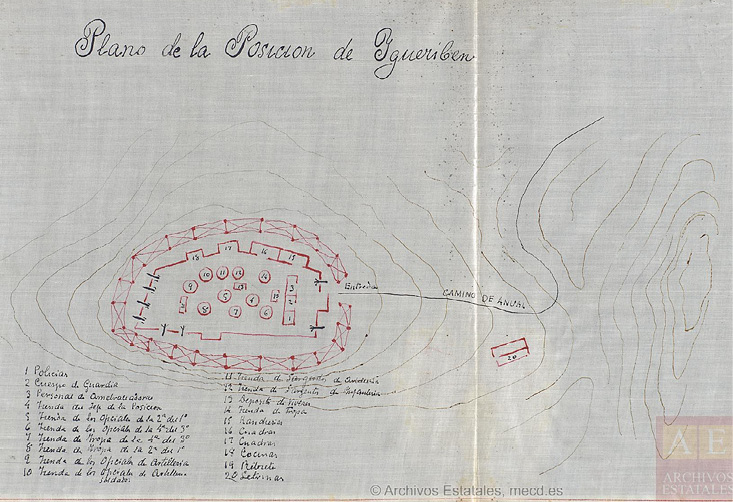 Plano de la Posicion de Ygueriben
Entrada
CAMINO DE ANUAL
18 17 16 15
10 11 12 14
9 13 3
5 4 19 2
8 7 6 1
20
1 Policias
2 Cuerpo de Guardia
3 Personal de Ametralladoras
4 Tienda del Jefe de la Posicion
5 Tienda de los Oficiales de la 2ª del 1º
6 Tienda de los Oficiales de la 4ª del 3º
7 Tienda de Tropa de la 4ª del 3º
8 Tienda de Tropa de la 2ª del 1º
9 Tienda de los Oficiales de Artilleria
10 Tienda de los Oficiales de Artilleria
Soldados
11 Tienda de Sargentos de Artilleria
12 Tienda de Sargentos de Infanteria
13 Deposito de
14 Tienda de Tropa
15
16 Cuadras
17 Cuadras
18 Cocinas
19 Retrete
20 Letrinas
© Archivos Estatales, mecd.es
AE
ARCHIVOS
ESTATALES